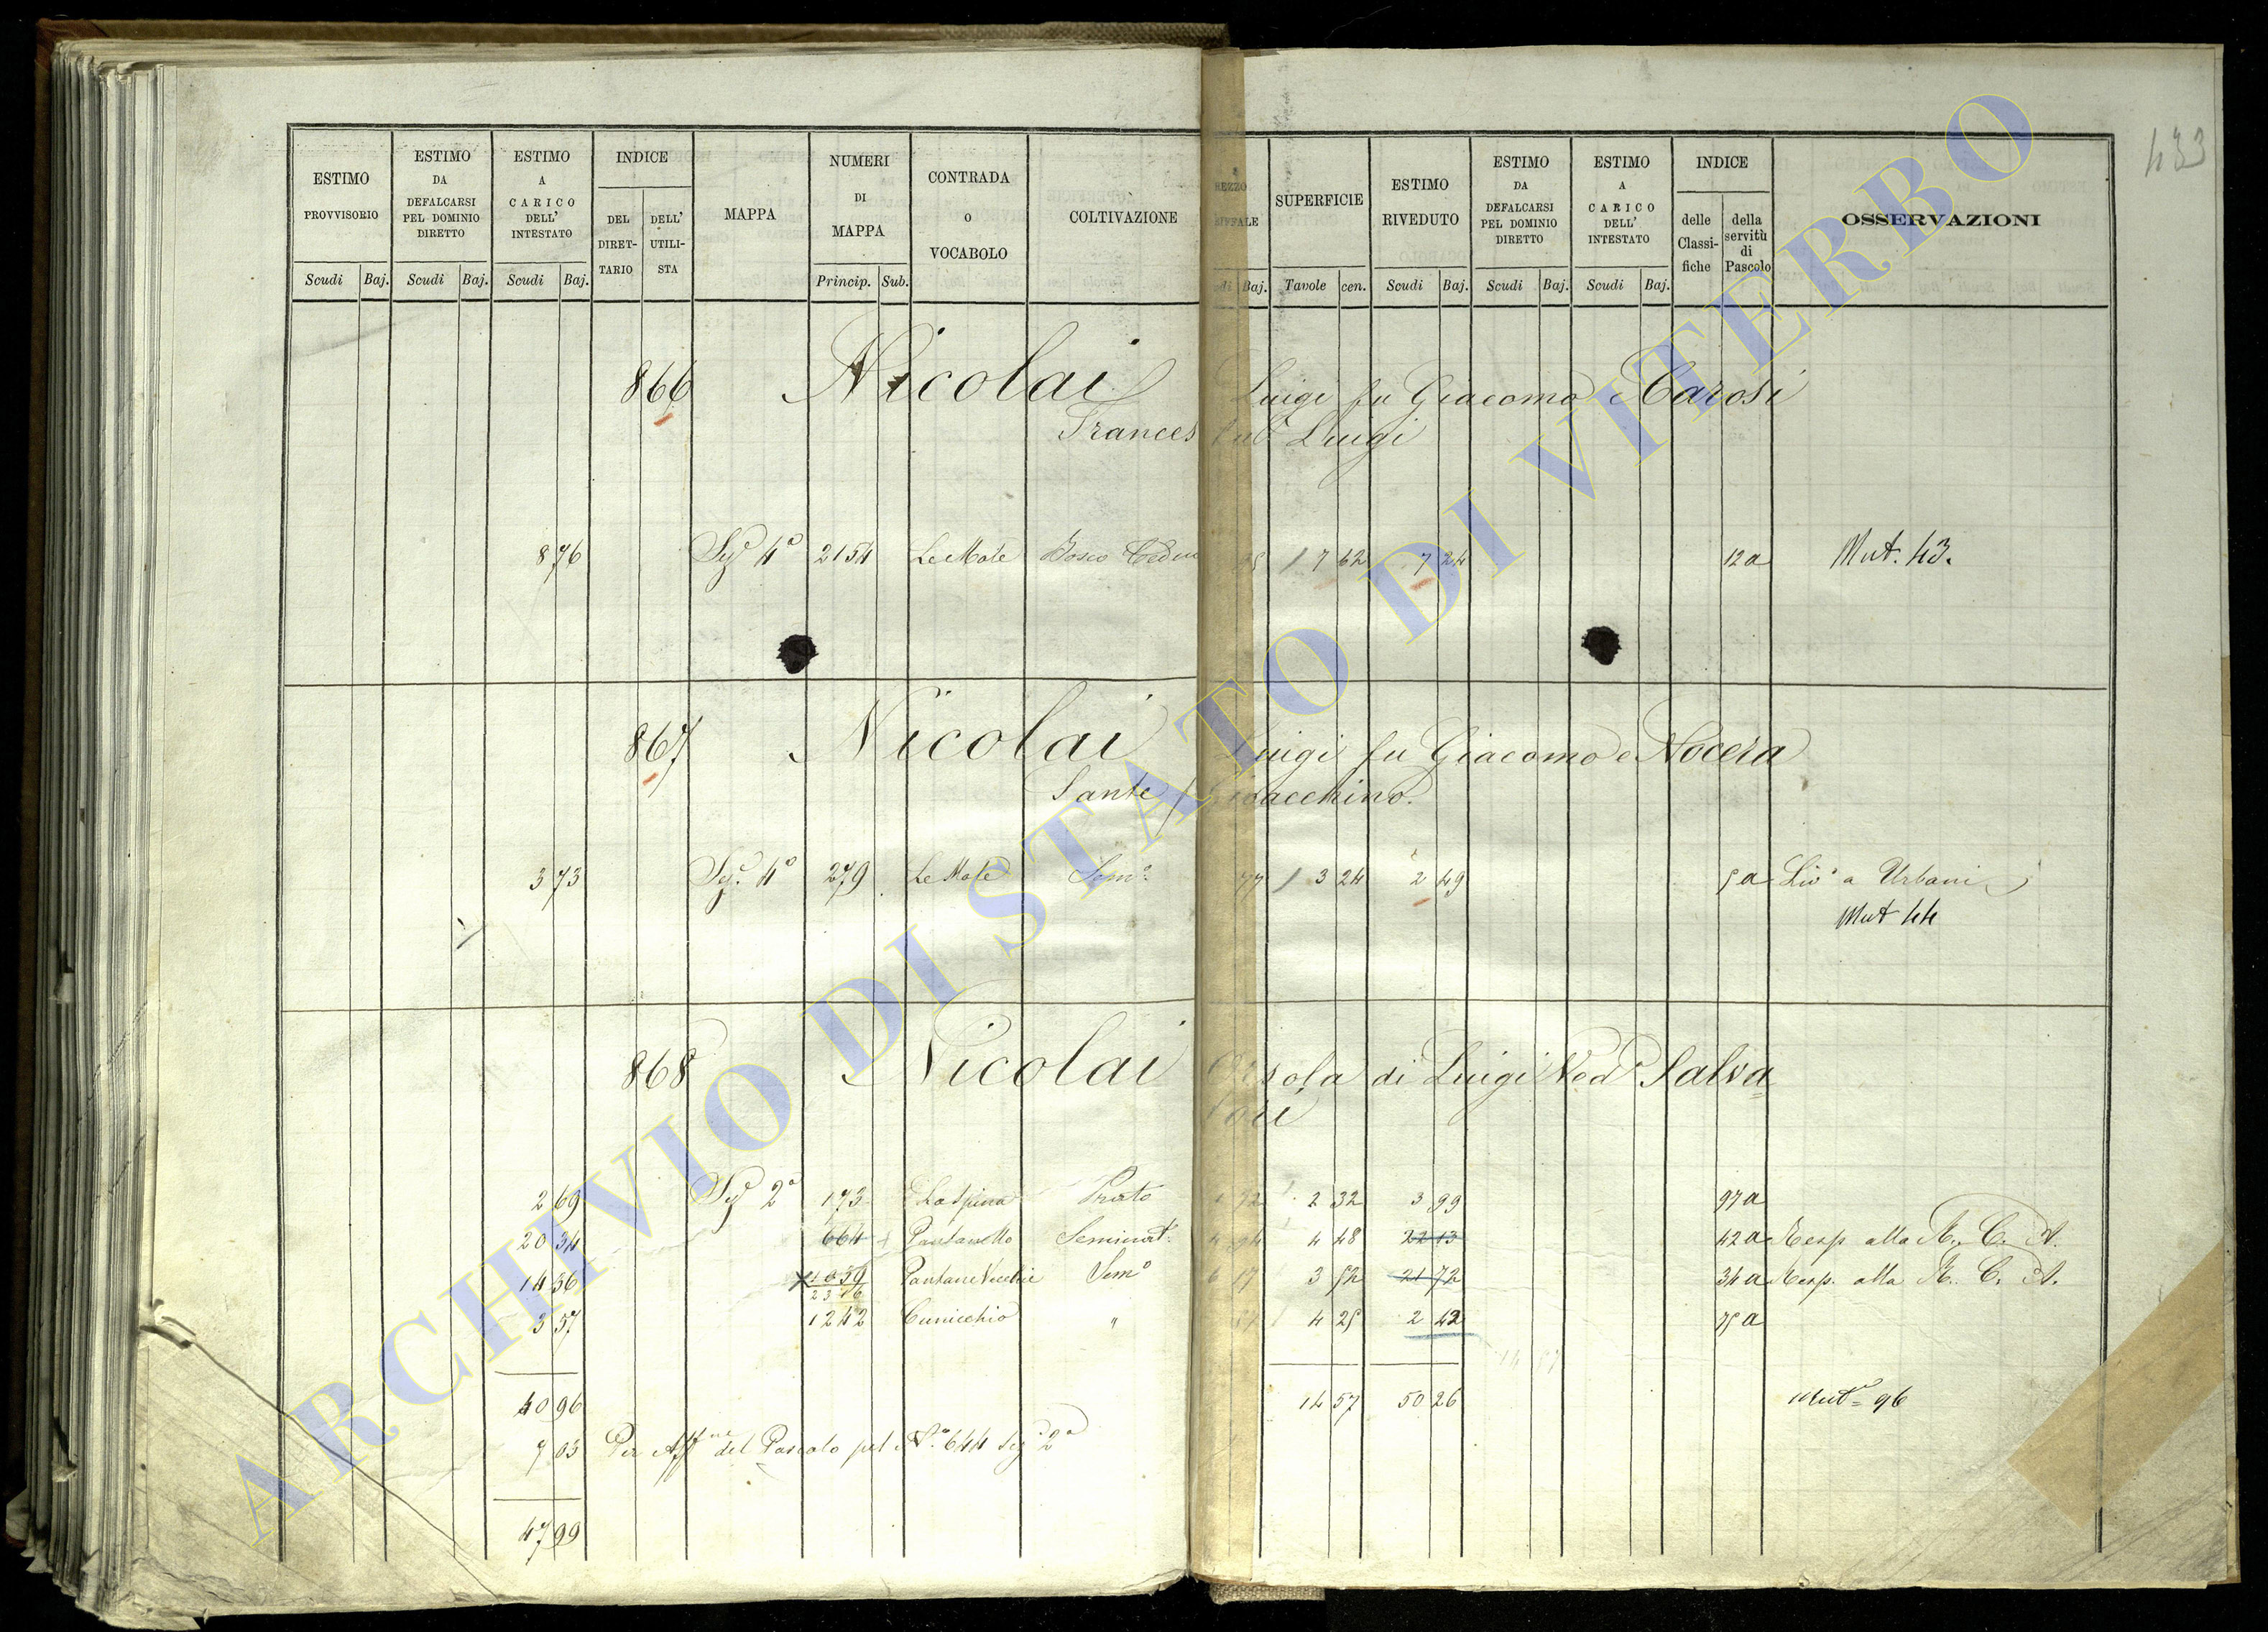 433
ESTIMO PROVVISORIO
ESTIMO DA DEFALCARSI PEL DOMINIO DIRETTO
ESTIMO A CARICO DELL' INTESTATO
INDICE
DEL DIRET-TARIO
DELL' UTILI-STA
MAPPA
NUMERI DI MAPPA
CONTRADA O VOCABOLO
COLTIVAZIONE
SUPERFICIE
ESTIMO RIVEDUTO
ESTIMO DA DEFALCARSI PEL DOMINIO DIRETTO
ESTIMO A CARICO DELL' INTESTATO
INDICE
delle Classi-fiche
della servitù di Pascolo
OSSERVAZIONI
Scudi Baj. Scudi Baj. Scudi Baj. Princip. Sub. Baj. Tavole cen. Scudi Baj. Scudi Baj. Scudi Baj.
866 Nicolai Luigi fu Giacomo e Carosi
Frances Luigi
8 76 Sez 4ª 2154 Le Mole Bosco Ceduo 7 62 7 24 12a Mut. 43.
867 Nicolai Luigi fu Giacomo e Nocera
Sante Gioacchino.
3 73 Sez. 4ª 279 Le Mole Semº 77 3 24 2 49 5a Livº a Urbani
Mut 44
868 Nicolai di Luigi Ved Salva=
2 69 Sez 2ª 173 La Spina Prato 2 32 3 99 97a
20 34 664 Pantanello Seminat. 4 48 22 13 42a Resp alla R. C. A.
14 36 1059 Pantane Vecchie Semº 6 17 3 52 21 72 34a Resp. alla R. C. A.
2316
3 57 1242 Cunicchio " 4 25 2 42 75a
40 96 14 57 50 26 Mut= 96
7 03 Per Aff.ne del Pascolo pel Nº 644 Sez 2ª
47 99
ARCHIVIO DI STATO DI VITERBO